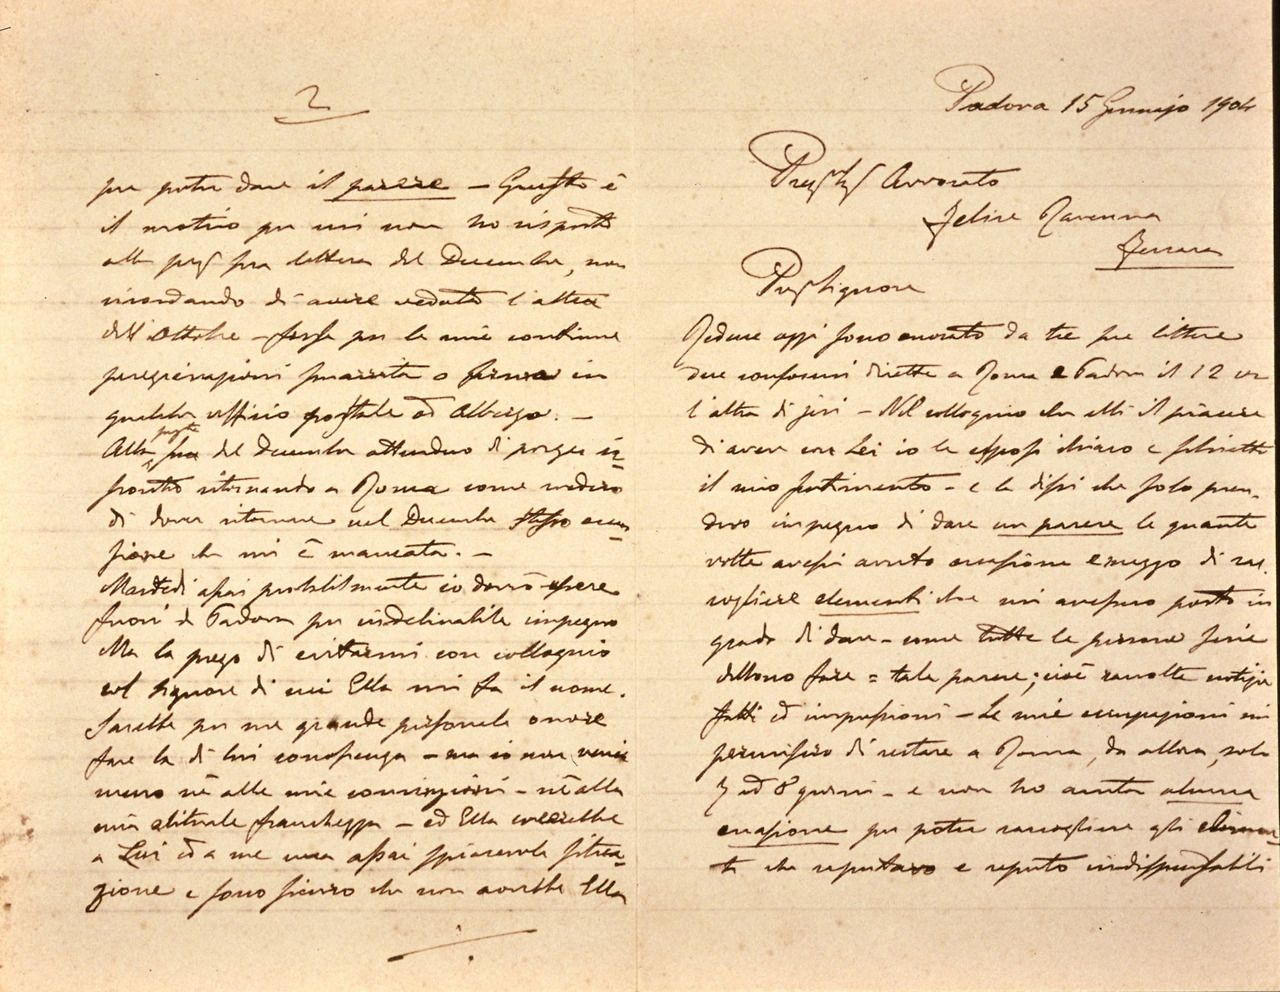 Padova 15 Gennajo 1904
Avvocato
Felice Ravenna
Ferrara
Preg Signore
Reduce oggi sono onorato da tre sue lettere
due conformi dirette a Roma e Padova il 12 una
l'altra di jeri - Nel colloquio che ebbi il piacere
di avere con Lei io le esposi chiaro e schietto
il mio sentimento - e le dissi che solo pren-
devo impegno di dare un parere le quante
volte avessi avuto occasione e mezzo di rac-
cogliere elementi che mi avessero posto in
grado di dare - come tutte le persone serie
debbono fare = tale parere; cioè raccolte notizie
fatti ed impressioni - Le mie occupazioni mi
permisero di restare a Roma, da allora, solo
7 ed 8 giorni - e non ho avuta alcuna
occasione per poter raccogliere gli elemen-
ti che reputavo e reputo indispensabili
2
per poter dare il parere - Questo è
il motivo per cui non ho risposto
alla preg sua lettera del Decembre, non
ricordando di avere veduto l'altra
dell'Ottobre - forse per le mie continue
peregrinazioni smarrita o ferma in
qualche ufficio postale od Albergo. -
Alla sua del Decembre attendevo di porger ri=
scontro ritornando a Roma come credevo
di dover ritornare nel Decembre stesso occa=
sione che mi è mancata. -
Martedì assai probabilmente io dovrò essere
fuori di Padova per indeclinabile impegno
Ma la prego di evitarmi con colloquio
col signore di cui Ella mi fa il nome.
Sarebbe per me grande personale onore
fare la di lui conoscenza - ma io non verrei
meno nè alle mie convinzioni - nè alla
mia abituale franchezza - ed Ella creerebbe
a Lui ed a me una assai spiacevole situa=
zione e sono sicuro che non avrebbe Ella